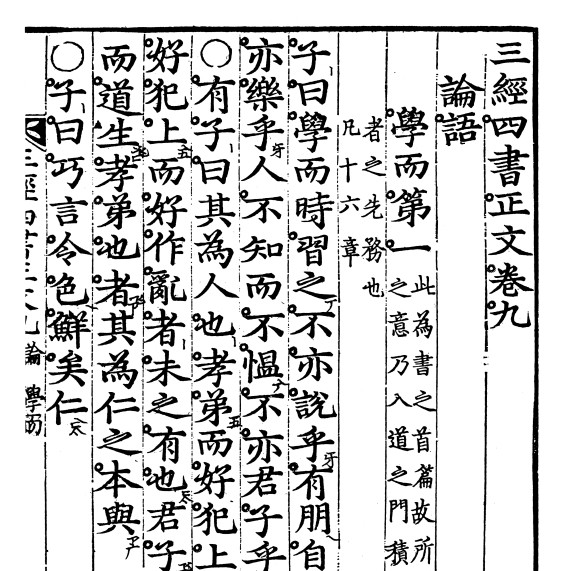 三經四書正文卷九
論語
學而第一
此為書之首篇故所
之意乃入道之門積
者之先務也
凡十六章
子曰學而時習之不亦說乎有朋自
亦樂乎人不知而不慍不亦君子乎
○有子曰其為人也孝弟而好犯上
好犯上而好作亂者未之有也君子
而道生孝弟也者其為仁之本與
○子曰巧言令色鮮矣仁
三經四書正文九 論 學而